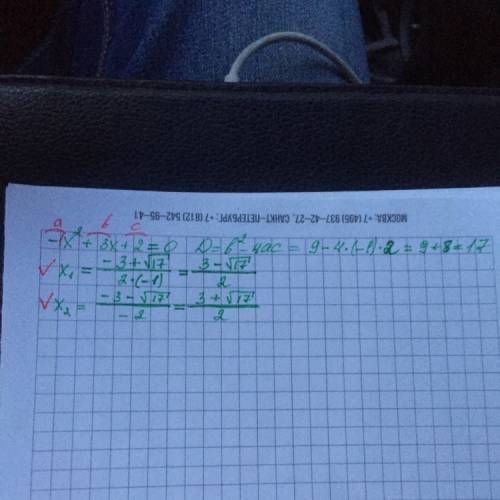 МОСКВА: +7 (495) 937-42-27, САНКТ-ПЕТЕРБУРГ: +7 (812) 542-95-41
a b c
-1x² + 3x + 2 = 0 D = b² - 4ac = 9 - 4·(-1)·2 = 9 + 8 = 17
✓ x₁ = (-3 + √17)/(2·(-1)) = (3 - √17)/2
✓ x₂ = (-3 - √17)/(-2) = (3 + √17)/2